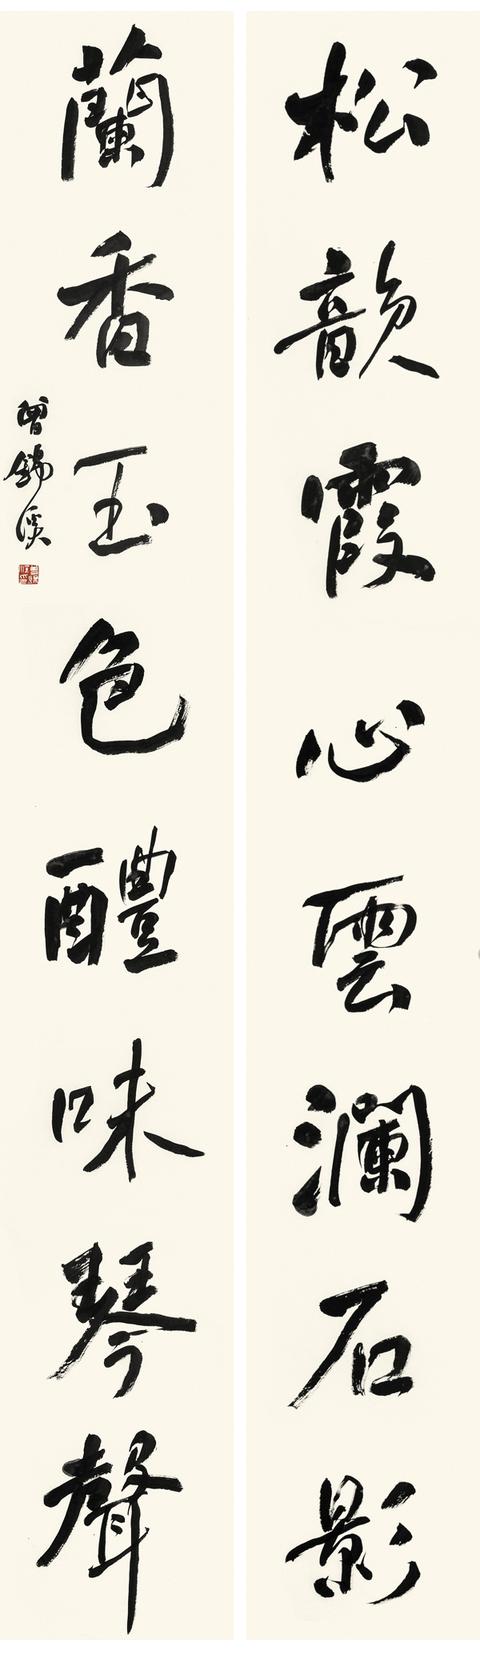 松韻霞心雲瀾石影
蘭香玉色醴味琴聲
曾錦溪